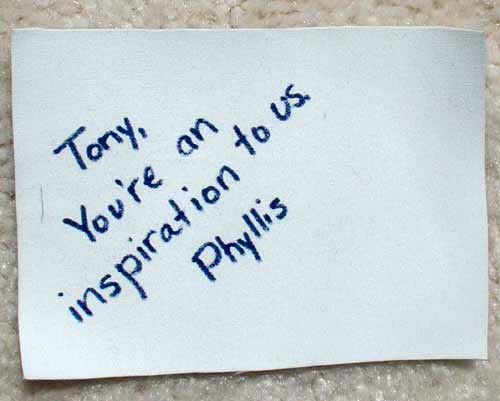 Tony,
You're an
inspiration to us.
Phyllis